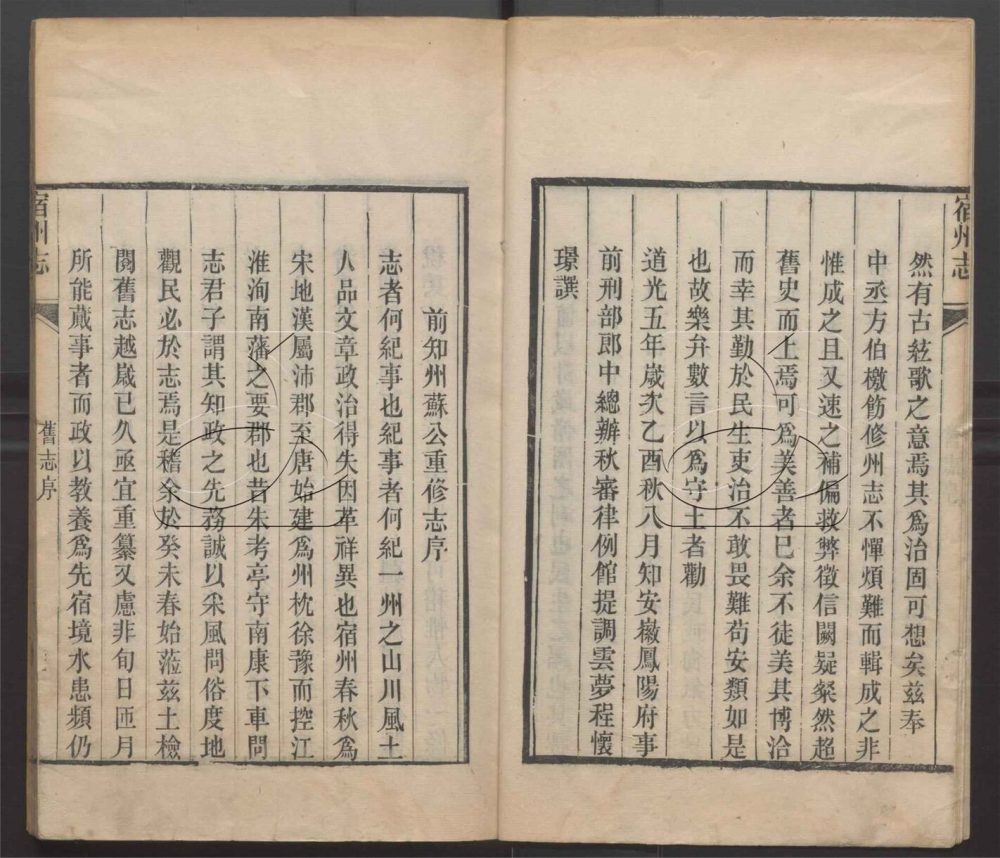 宿州志
然有古絃歌之意焉其爲治固可想矣茲奉
中丞方伯檄飭修州志不憚煩難而輯成之非
惟成之且又速之補偏救弊徵信闕疑粲然超
舊史而上焉可爲美善者已余不徒美其博洽
而幸其勤於民生吏治不敢畏難苟安類如是
也故樂弁數言以爲守土者勸
道光五年歲次乙酉秋八月知安徽鳳陽府事
前刑部郎中總辦秋審律例館提調雲夢程懷
璟譔
前知州蘇公重修志序
志者何紀事也紀事者何紀一州之山川風土
人品文章政治得失因革祥異也宿州春秋爲
宋地漢屬沛郡至唐始建爲州枕徐豫而控江
淮洵南藩之要郡也昔朱考亭守南康下車問
志君子謂其知政之先務誠以釆風問俗度地
觀民必於志焉是稽余於癸未春始蒞茲土檢
閱舊志越歲已久亟宜重纂又慮非旬日匝月
所能蕆事者而政以教養爲先宿境水患頻仍
宿州志
舊志序